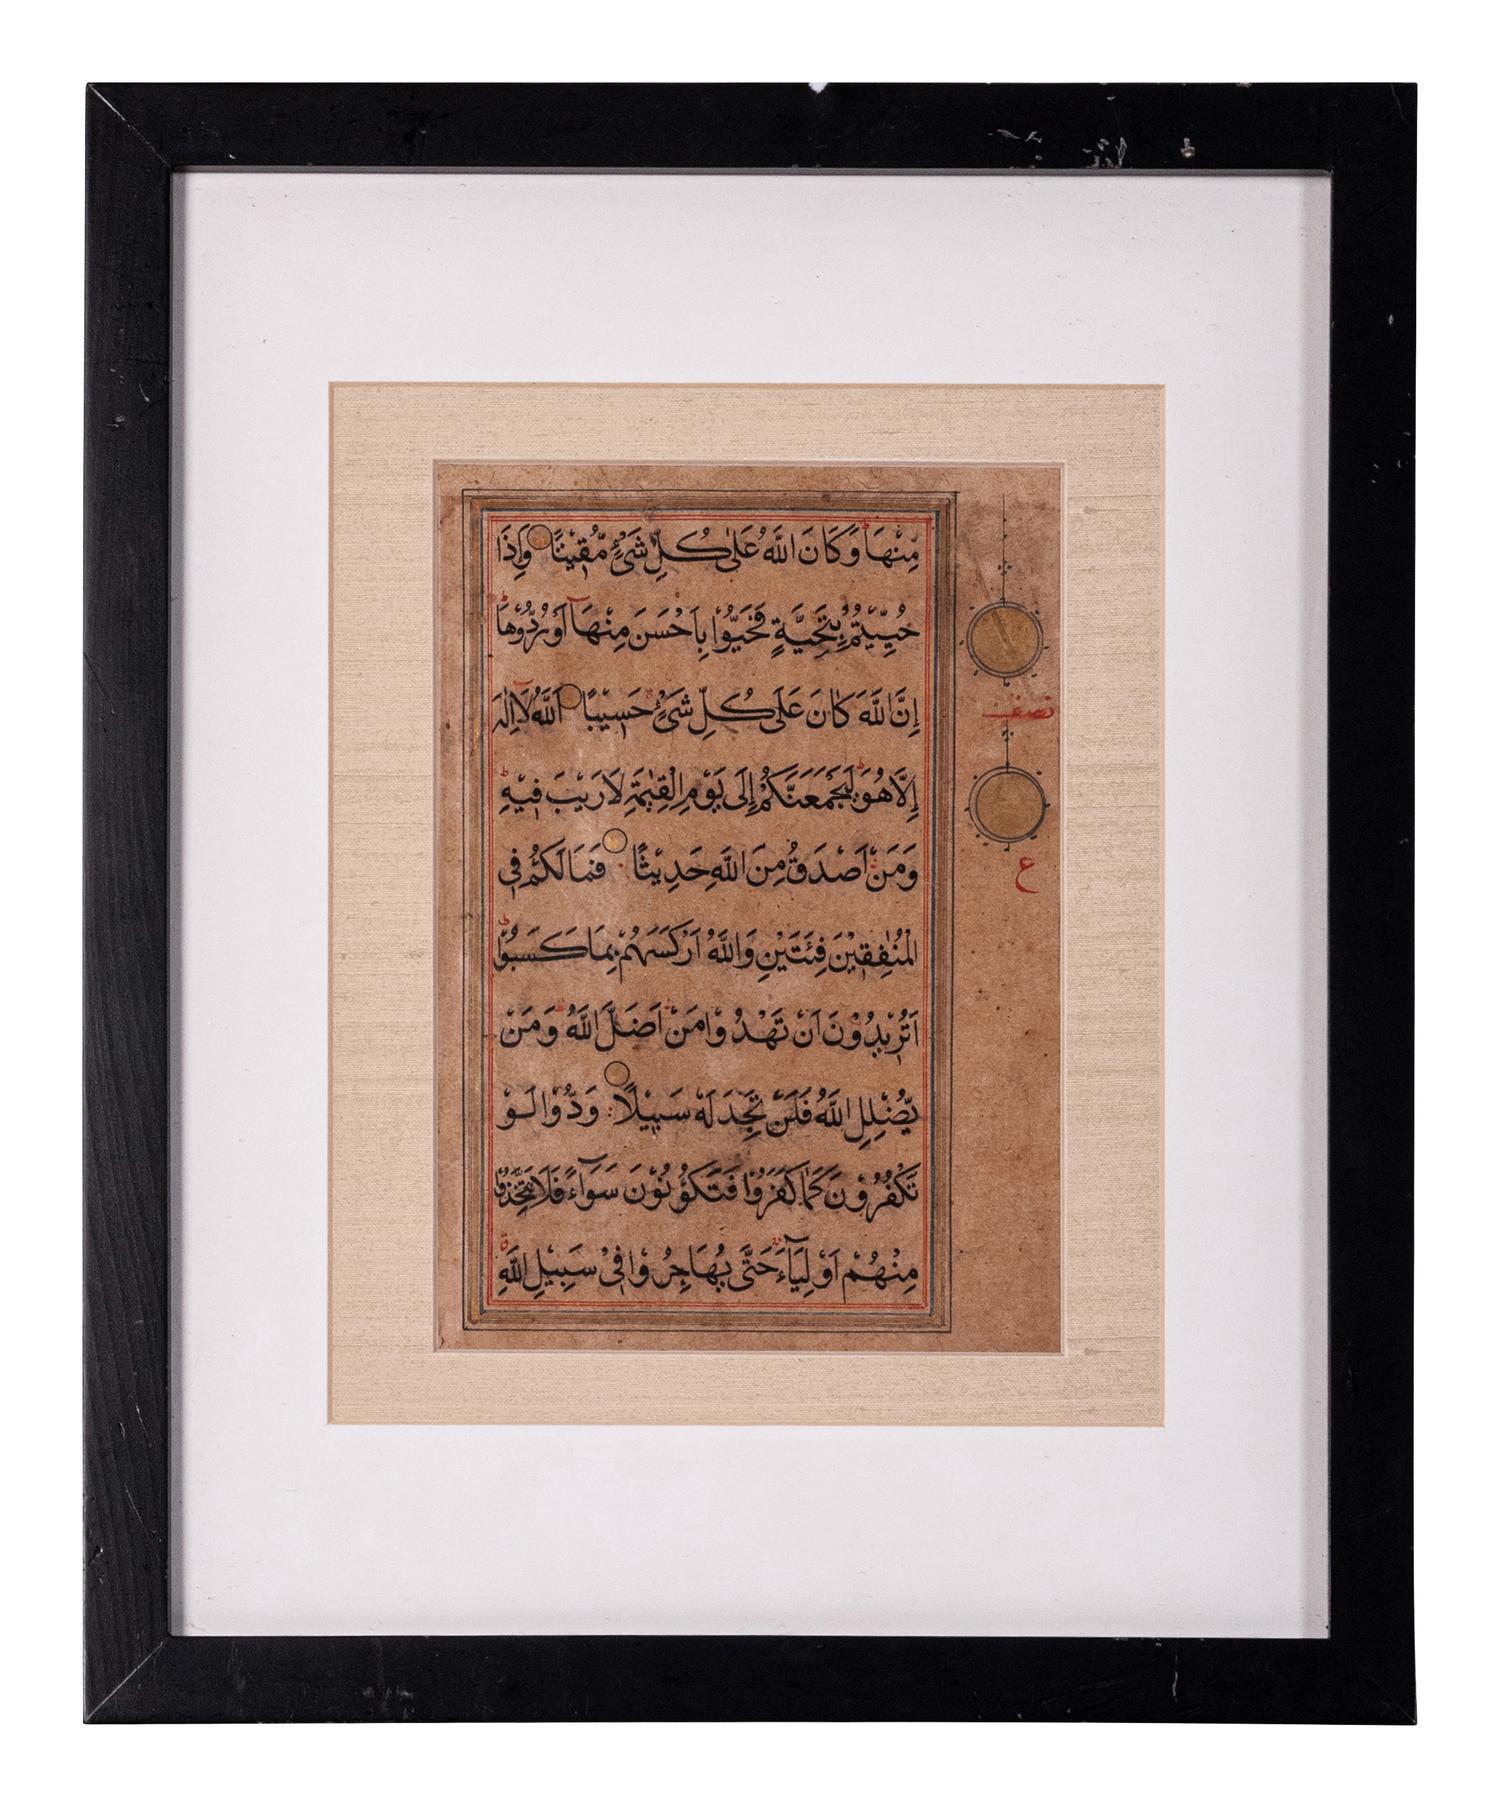 مِّنْهَا وَكَانَ اللَّهُ عَلَىٰ كُلِّ شَيْءٍ مُّقِيْتًا وَإِذَا
حُيِّيْتُمْ بِتَحِيَّةٍ فَحَيُّوْا بِاَحْسَنَ مِنْهَآ اَوْ رُدُّوْهَا
نصف
إِنَّ اللَّهَ كَانَ عَلَىٰ كُلِّ شَيْءٍ حَسِيْبًا اَللَّهُ لَآ اِلٰهَ
إِلَّا هُوَ لَيَجْمَعَنَّكُمْ إِلَى يَوْمِ الْقِيٰمَةِ لَا رَيْبَ فِيْهِ
وَمَنْ اَصْدَقُ مِنَ اللَّهِ حَدِيْثًا فَمَا لَكُمْ فِى
ع
الْمُنٰفِقِيْنَ فِئَتَيْنِ وَاللَّهُ اَرْكَسَهُمْ بِمَا كَسَبُوْا
اَتُرِيْدُوْنَ اَنْ تَهْدُوْا مَنْ اَضَلَّ اللَّهُ وَمَنْ
يُّضْلِلِ اللَّهُ فَلَنْ تَجِدَ لَهٗ سَبِيْلًا وَدُّوْا لَوْ
تَكْفُرُوْنَ كَمَا كَفَرُوْا فَتَكُوْنُوْنَ سَوَآءً فَلَا تَتَّخِذُوْا
مِنْهُمْ اَوْلِيَآءَ حَتّٰى يُهَاجِرُوْا فِىْ سَبِيْلِ اللَّهِ